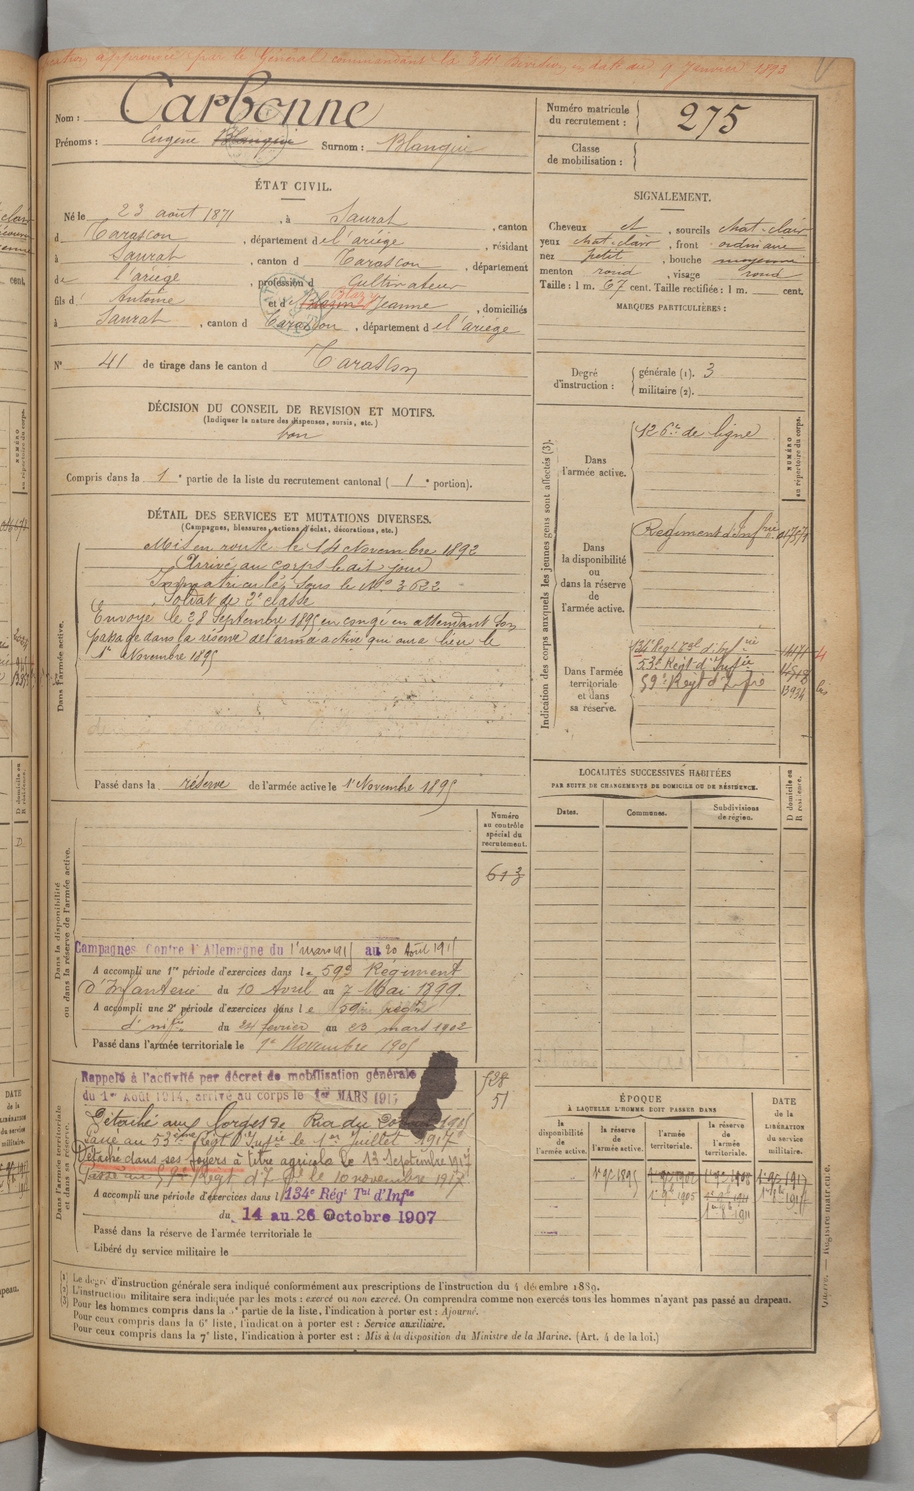 approuvée par le Général commandant la 34e Division en date du 9 Janvier 1893
Nom : Carbonne
Prénoms : Eugène Blanqui Surnom : Blanqui
Numéro matricule du recrutement : 275
Classe de mobilisation :
ÉTAT CIVIL.
Né le 23 août 1871, à Saurat, canton
d Tarascon, département de l'ariége, résidant
à Saurat, canton d Tarascon, département
de l'ariége, profession d Cultivateur
fils d Antoine et d Jeanne, domiciliés
à Saurat, canton d Tarascon, département de l'ariege
N° 41 de tirage dans le canton d Tarascon
SIGNALEMENT.
Cheveux et, sourcils chat-clair
yeux chat-clair, front ordinaire
nez petit, bouche moyenne
menton rond, visage rond
Taille : 1 m. 67 cent. Taille rectifiée : 1 m. cent.
MARQUES PARTICULIÈRES :
Degré d'instruction : générale (1). 3
militaire (2).
DÉCISION DU CONSEIL DE REVISION ET MOTIFS.
(Indiquer la nature des dispenses, sursis, etc.)
bon
Compris dans la 1e partie de la liste du recrutement cantonal ( 1e portion).
DÉTAIL DES SERVICES ET MUTATIONS DIVERSES.
(Campagnes, blessures, actions d'éclat, décorations, etc.)
Dans l'armée active.
Mis en route le 14 Novembre 1892
Arrivé au corps le dit jour
Immatriculé sous le No 3622
Soldat de 2e classe
Envoyé le 28 Septembre 1895 en congé en attendant son
passage dans la réserve de l'armée active qui aura lieu le
1er Novembre 1895
Passé dans la réserve de l'armée active le 1er Novembre 1895
Indication des corps auxquels les jeunes gens sont affectés (3).
NUMÉRO au répertoire du corps.
Dans l'armée active.
126e de ligne
Dans la disponibilité ou dans la réserve de l'armée active.
Regiment d'Infrie
Dans l'armée territoriale et dans sa réserve.
134e Régt Tal d'infrie
53e Régt d'Infie
59e Régt d'Infrie
LOCALITÉS SUCCESSIVES HABITÉES
PAR SUITE DE CHANGEMENTS DE DOMICILE OU DE RÉSIDENCE.
Dates. Communes. Subdivisions de région. D domicile ou R résidence.
Numéro au contrôle spécial du recrutement.
613
Dans la disponibilité ou dans la réserve de l'armée active.
Campagnes Contre l'Allemagne du 1er mars 1915 au 20 Août 1915
A accompli une 1re période d'exercices dans le 59e Régiment
d'Infanterie du 10 Avril au 7 Mai 1899.
A accompli une 2e période d'exercices dans le 59e régt
d'infie du 24 février au 23 mars 1902
Passé dans l'armée territoriale le 1er Novembre 1905
Dans l'armée territoriale et dans sa réserve.
528
51
Rappelé à l'activité par décret de mobilisation générale
du 1er Août 1914, arrivé au corps le 1er MARS 1915
Détaché aux forges de Ria du
Passé au 53ème Régt d'Infie le 1er juillet 1917
Détaché dans ses foyers à titre agricole le 13 Septembre 1917
Passé au 59e Régt d'Ie le 10 novembre 1917
A accompli une période d'exercices dans l 134e Régt Tal d'Infie
du 14 au 26 Octobre 1907
Passé dans la réserve de l'armée territoriale le
Libéré du service militaire le
ÉPOQUE
À LAQUELLE L'HOMME DOIT PASSER DANS
la disponibilité de l'armée active. la réserve de l'armée active. l'armée territoriale. la réserve de l'armée territoriale. DATE de la LIBÉRATION du service militaire.
(1) Le degré d'instruction générale sera indiqué conformément aux prescriptions de l'instruction du 4 décembre 1889.
(2) L'instruction militaire sera indiquée par les mots : exercé ou non exercé. On comprendra comme non exercés tous les hommes n'ayant pas passé au drapeau.
(3) Pour les hommes compris dans la 5e partie de la liste, l'indication à porter est : Ajourné.
Pour ceux compris dans la 6e liste, l'indication à porter est : Service auxiliaire.
Pour ceux compris dans la 7e liste, l'indication à porter est : Mis à la disposition du Ministre de la Marine. (Art. 4 de la loi.)